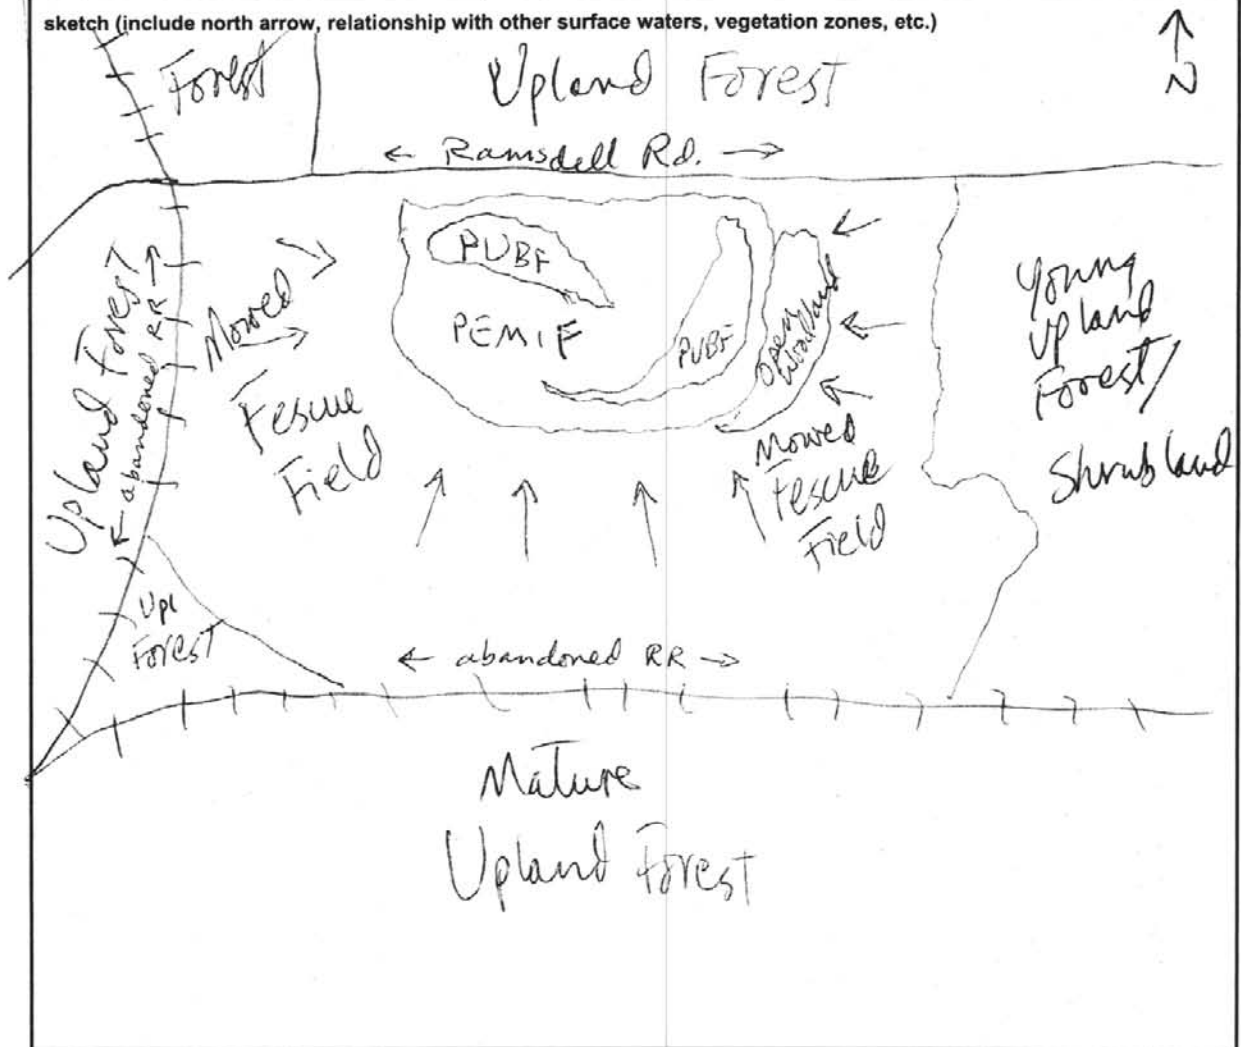 sketch (include north arrow, relationship with other surface waters, vegetation zones, etc.)
N
Forest
Upland Forest
← Ramsdell Rd. →
Upland Forest
← abandoned RR →
Mowed
Fescue
Field
PUBF
PEM1F
PUBF
Open
Woodland
Mowed
Fescue
Field
Young
Upland
Forest/
Shrubland
Upl
Forest
← abandoned RR →
Mature
Upland Forest